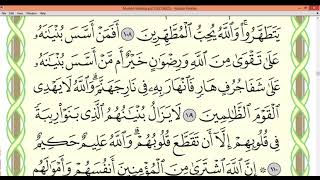 يَتَطَهَّرُوا۟ ۚ وَٱللَّهُ يُحِبُّ ٱلْمُطَّهِّرِينَ ١٠٨ أَفَمَنْ أَسَّسَ بُنْيَـٰنَهُۥ
عَلَىٰ تَقْوَىٰ مِنَ ٱللَّهِ وَرِضْوَٰنٍ خَيْرٌ أَم مَّنْ أَسَّسَ بُنْيَـٰنَهُۥ
عَلَىٰ شَفَا جُرُفٍ هَارٍ فَٱنْهَارَ بِهِۦ فِى نَارِ جَهَنَّمَ ۗ وَٱللَّهُ لَا يَهْدِى
ٱلْقَوْمَ ٱلظَّـٰلِمِينَ ١٠٩ لَا يَزَالُ بُنْيَـٰنُهُمُ ٱلَّذِى بَنَوْا۟ رِيبَةً
فِى قُلُوبِهِمْ إِلَّآ أَن تَقَطَّعَ قُلُوبُهُمْ ۗ وَٱللَّهُ عَلِيمٌ حَكِيمٌ
١١٠ إِنَّ ٱللَّهَ ٱشْتَرَىٰ مِنَ ٱلْمُؤْمِنِينَ أَنفُسَهُمْ وَأَمْوَٰلَهُم